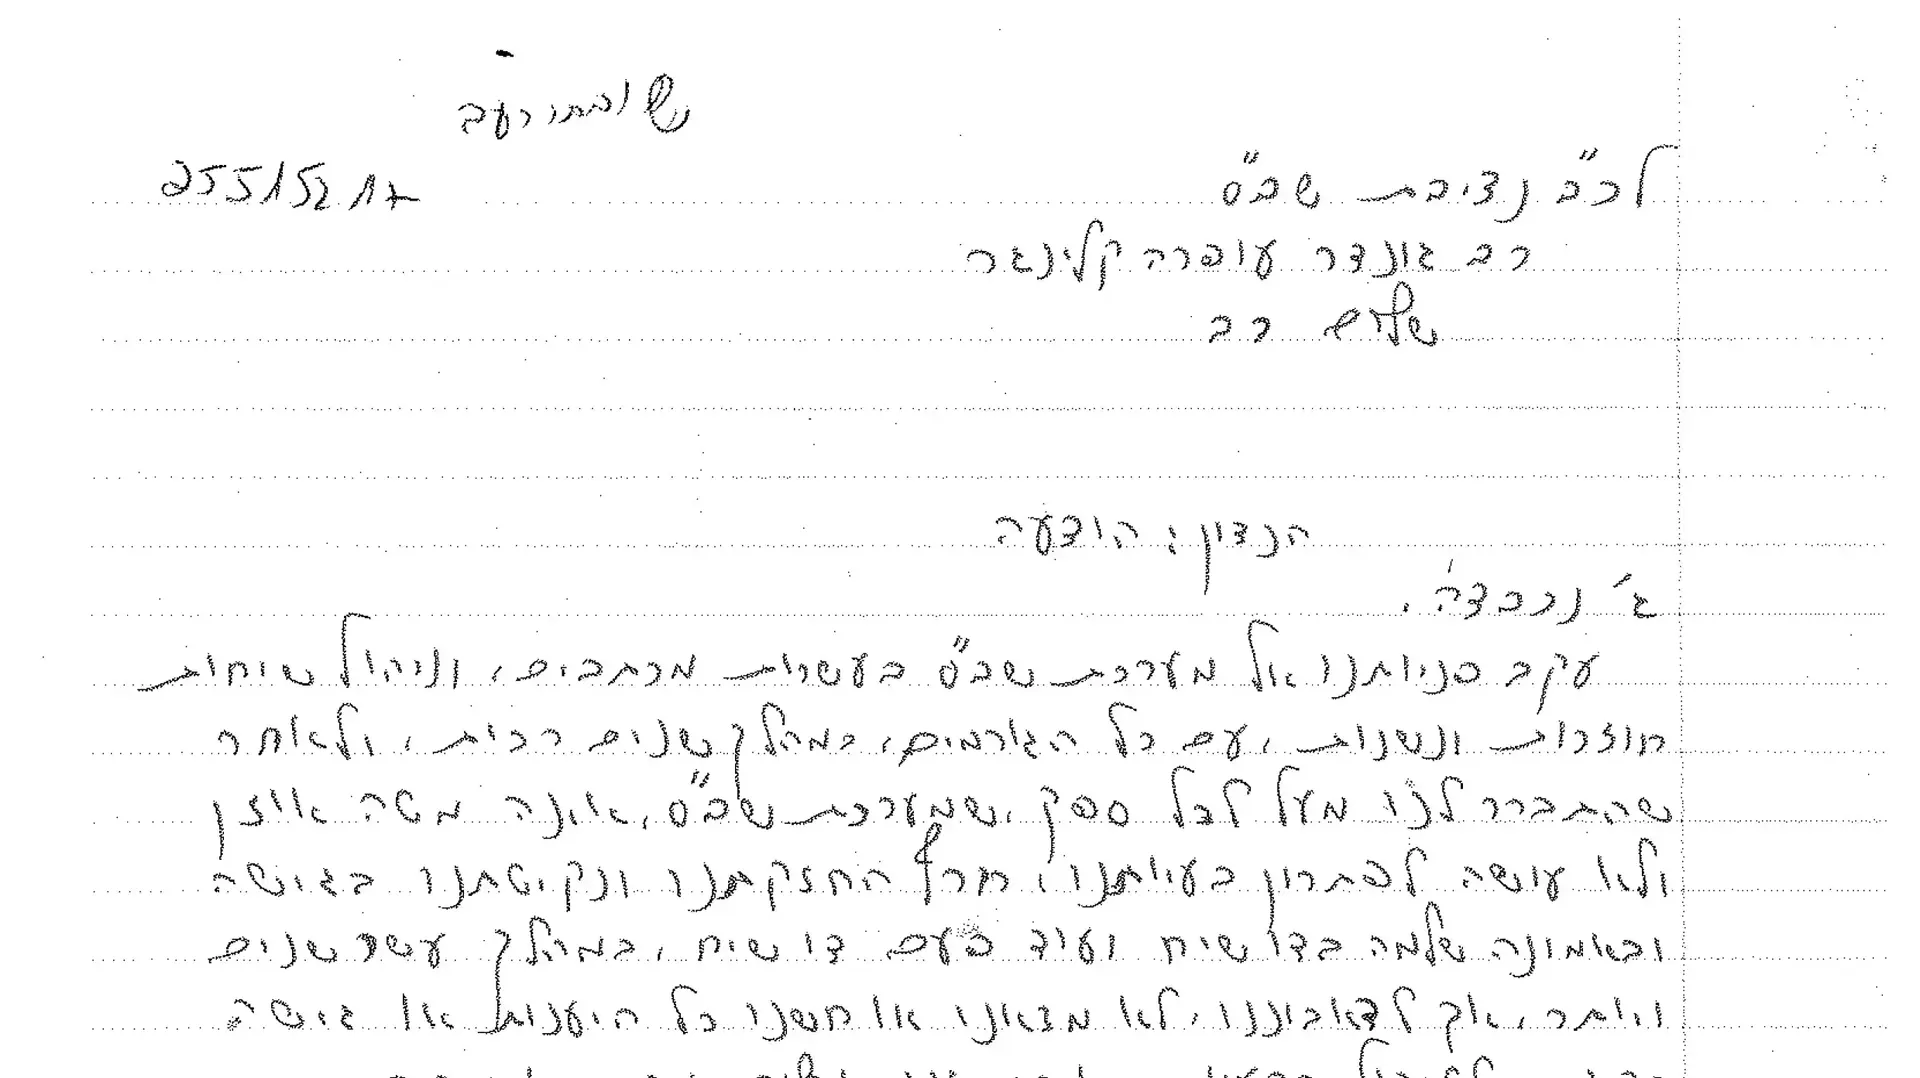 שובתי רעב
לכ"ב נציבת שב"ס
רב גונדר עופרה קלינגר
שלום רב
הנדון: הודעה
ג' נכבדה,
עקב פניותנו אל מערכת שב"ס בעשרות מכתבים, וניהול שיחות
חוזרות ונשנות, עם כל הגורמים, במהלך שנים רבות, ולאחר
שהתברר לנו מעל לכל ספק, שמערכת שב"ס, אינה מטה אוזן
ולא עושה לפתרון בעיותנו, חרף החזקתנו ונקיטתנו בגישה
ובאמונה שלמה בדו שיח ועוד פעם דו שיח, במהלך עשר שנים
ויותר, אך לדאבוננו, לא מצאנו או חשנו כל היענות או גישה